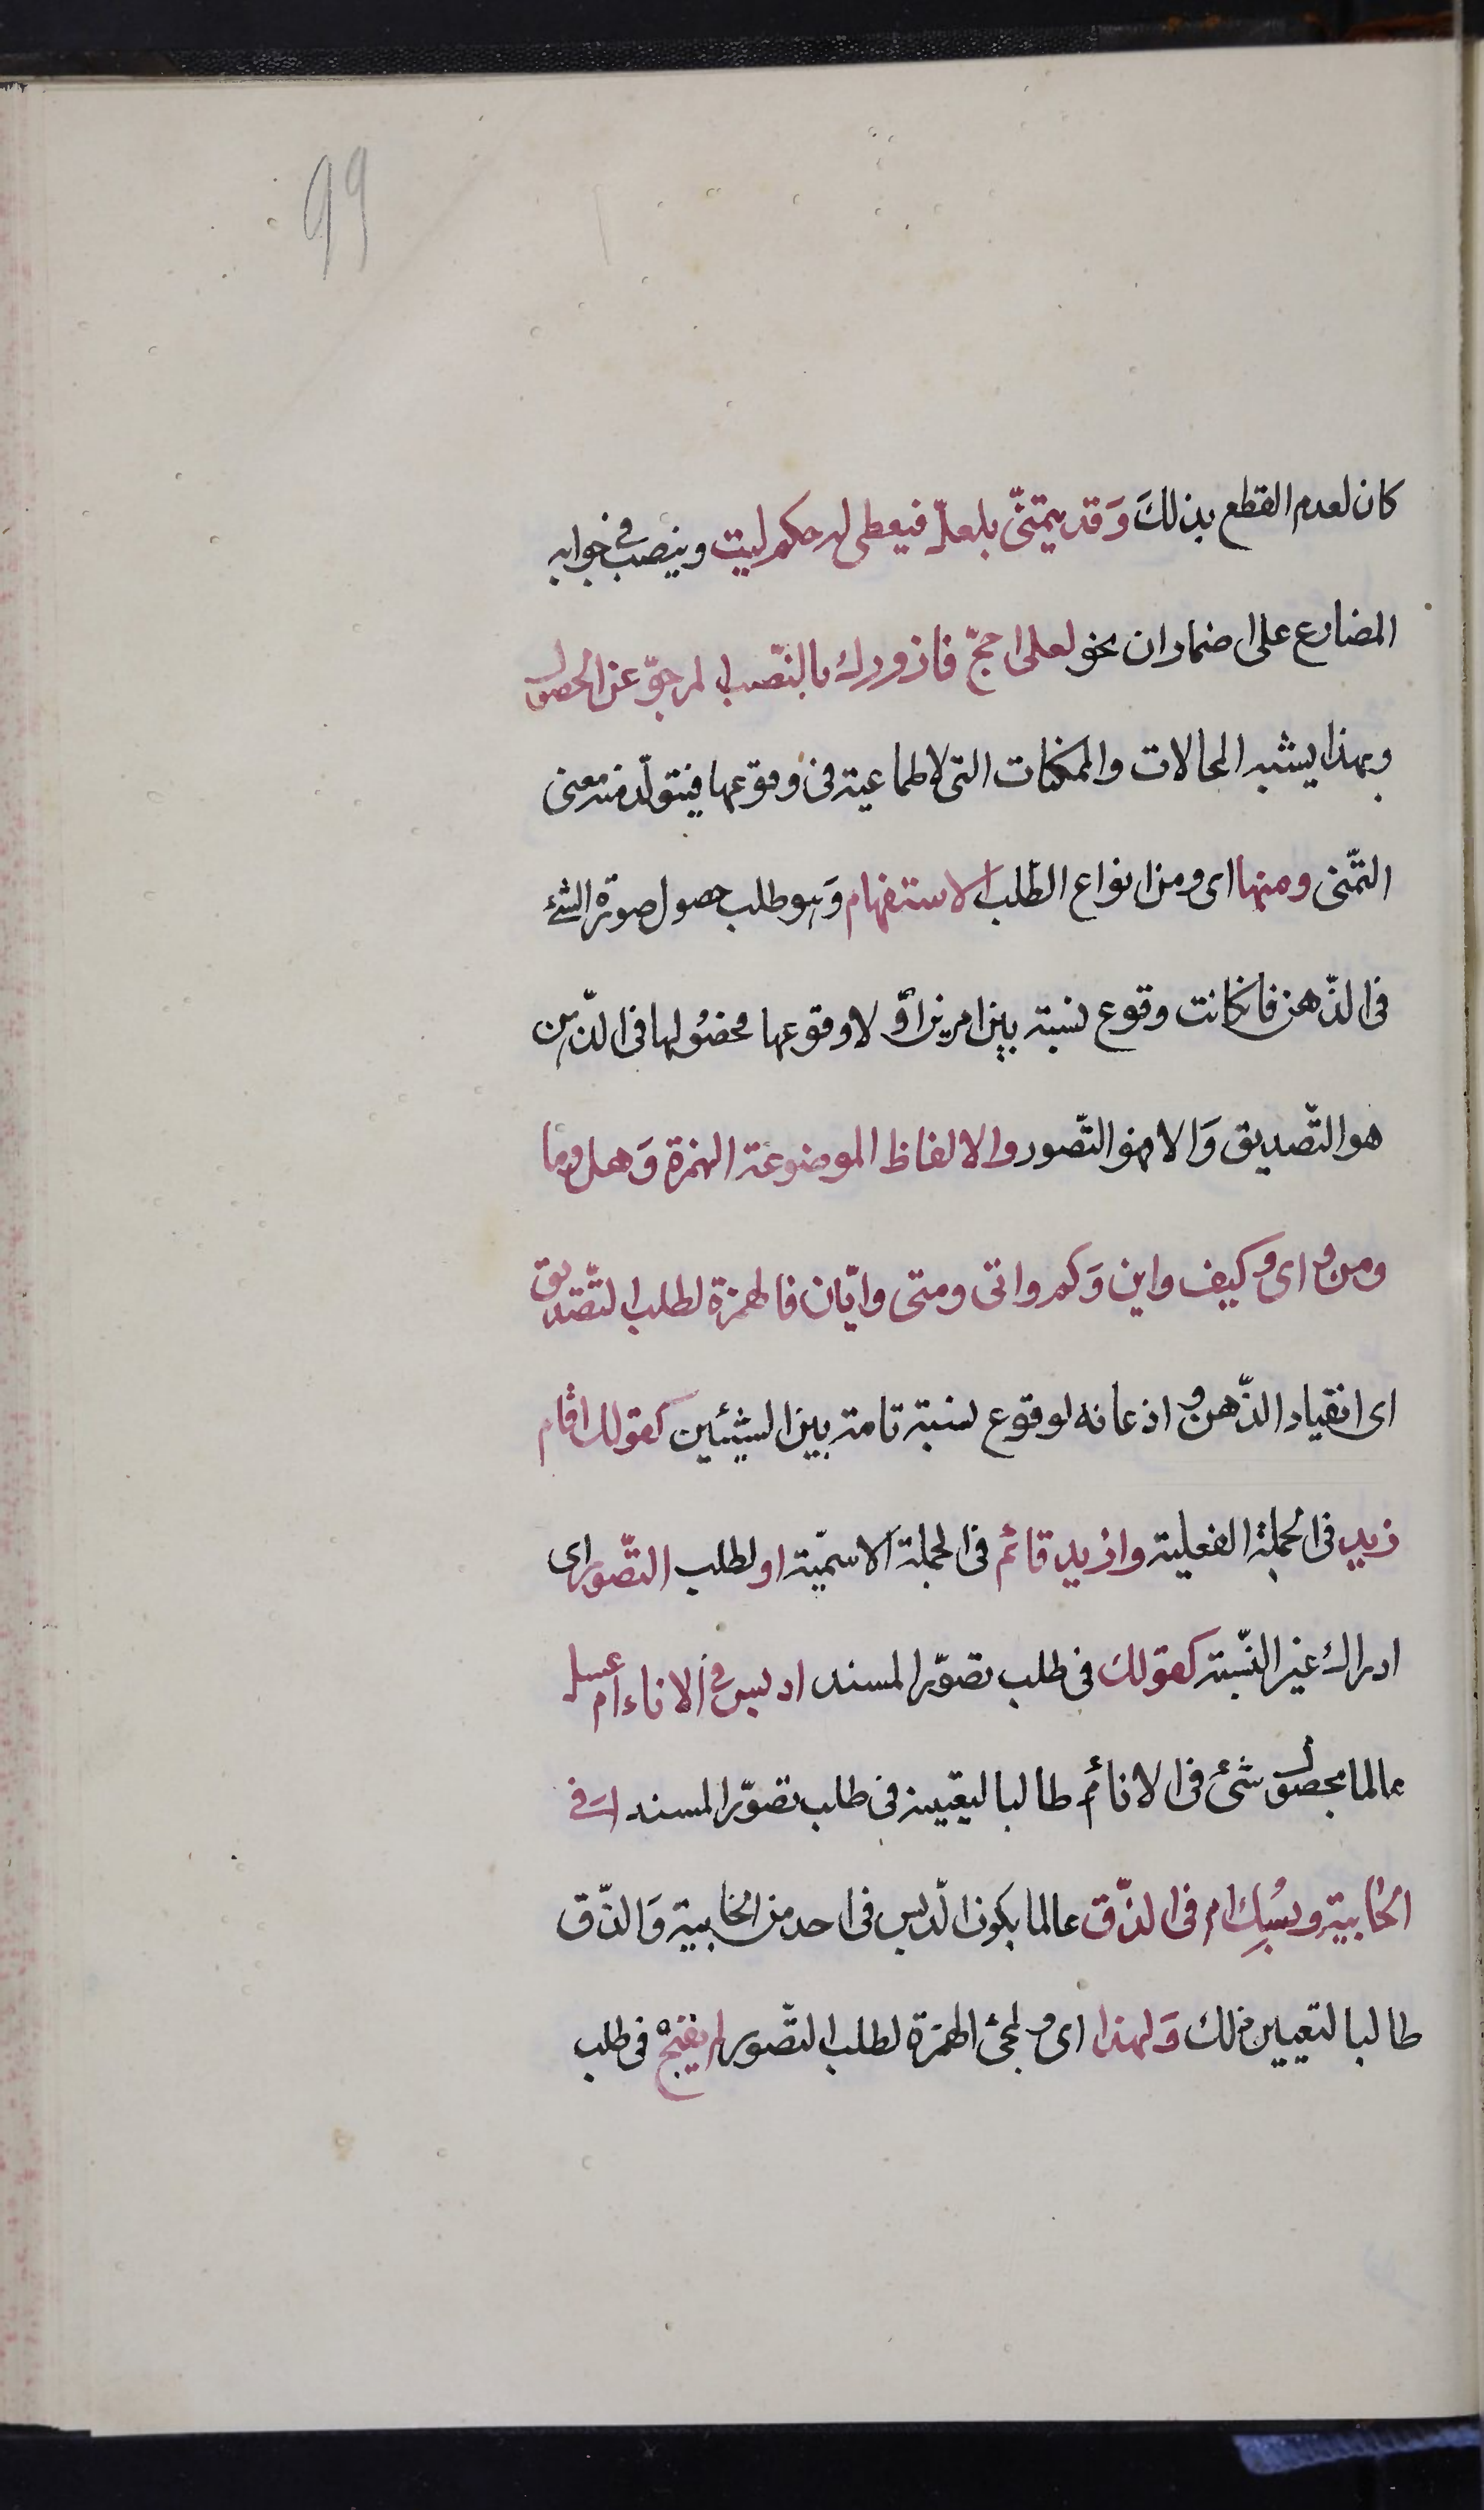 99
كان لعدم القطع بذلكَ وَقد يتمنّى بلعلّ فيعطى له حكم ليت وينصب فى جوابه
المضارع على اضمار ان نحو لعلى احجّ فازورك بالنّصب لمرجوّ عن الحصول
وبهذا يشبه المحالات والممكنات التى لاطماعية فى وقوعها فيتولّد منه معنى
التمّنى ومنها اى ومن انواع الطلب الاستفهام وَهو طلب حصول صورة الشئ
فى الذّهن فان كانت وقوع نسبة بين امرين اوَ لا وقوعها فحصُولها فى الذّهن
هو التّصديق وَالا فهو التّصور والالفاظ الموضوعة الهمزة وَهل وما
ومن واى وكيف واين وَكم وانى ومتى وايّان فالهمزة لطلب التّصديق
اى انقياد الذّهن واذعانه لوقوع نسبة تامة بين الشيئين كقولك اقام
زيد فى الجملة الفعلية وازيد قائم فى الجملة الاسميّة او لطلب التّصور اى
ادراك غير النّسبة كقولك فى طلب تصوّر المسند ادبس فى الاناء ام عسل
عالما بحصول شئ فى الاناء طالبا لتعيينه فى طلب تصوّر المسند افى
الخابية دبسُك ام فى الزّق عالما بكون الّدبس فى احد من الخابية وَالزّق
طالبا لتعيين ذلك وَلهذا اى ولمجئ الهمزة لطلب التّصور لم يقبح فى طلب